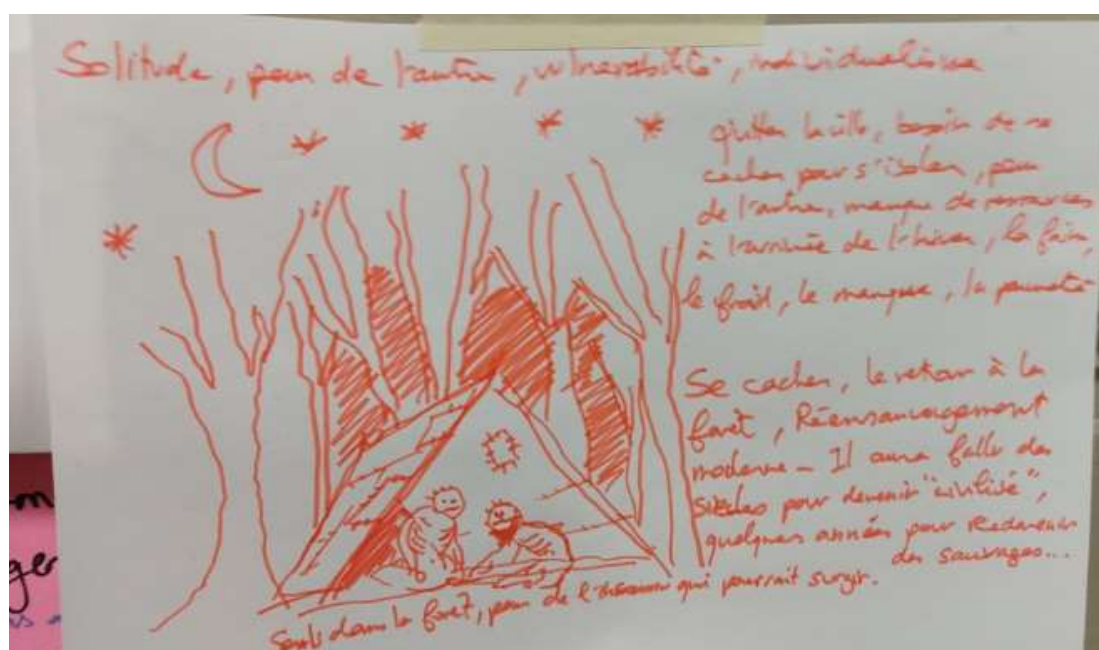 Solitude, peur de l'autre, vulnérabilité, individualisme
quitter la ville, besoin de se
cacher pour s'isoler, peur
de l'autre, manque de ressources
à l'arrivée de l'hiver, la faim,
le froid, le manque, la pauvreté
Se cacher, le retour à la
forêt, Réensauvagement
moderne - Il aura fallu des
siècles pour devenir "civilisé",
quelques années pour redevenir
des sauvages...
Seuls dans la forêt, peur de l'inconnu qui pourrait surgir.
ger